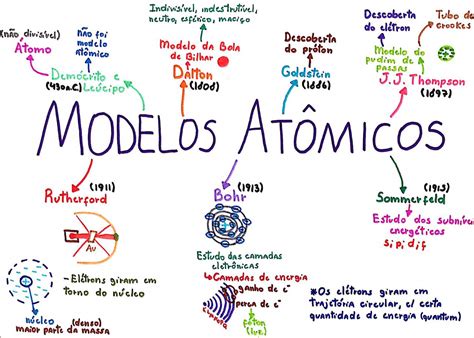 (não divisível)
Átomo
não foi
modelo
atômico
Demócrito e
Leúcipo
(430a.C)
Indivisível, indestrutível,
neutro, esférico, maciço
Modelo da Bola
de Bilhar
Dalton
(1808)
Descoberta
do próton
Goldstein
(1886)
Descoberta
do elétron
Tubo de
crookes
Modelo do
pudim de
passas
J.J. Thompson
(1897)
MODELOS ATÔMICOS
(1911)
Rutherford
Au
- Elétrons giram em
torno do núcleo
núcleo (denso)
maior parte da massa
(1913)
Bohr
Estudo das camadas
eletrônicas
Camadas de energia
ganho de e⁻
perca de e⁻
fóton
(luz)
(1915)
Sommerfeld
Estudo dos subníveis
energéticos
s i p i d i f
*Os elétrons giram em
trajetória circular, c/ certa
quantidade de energia (quantum)